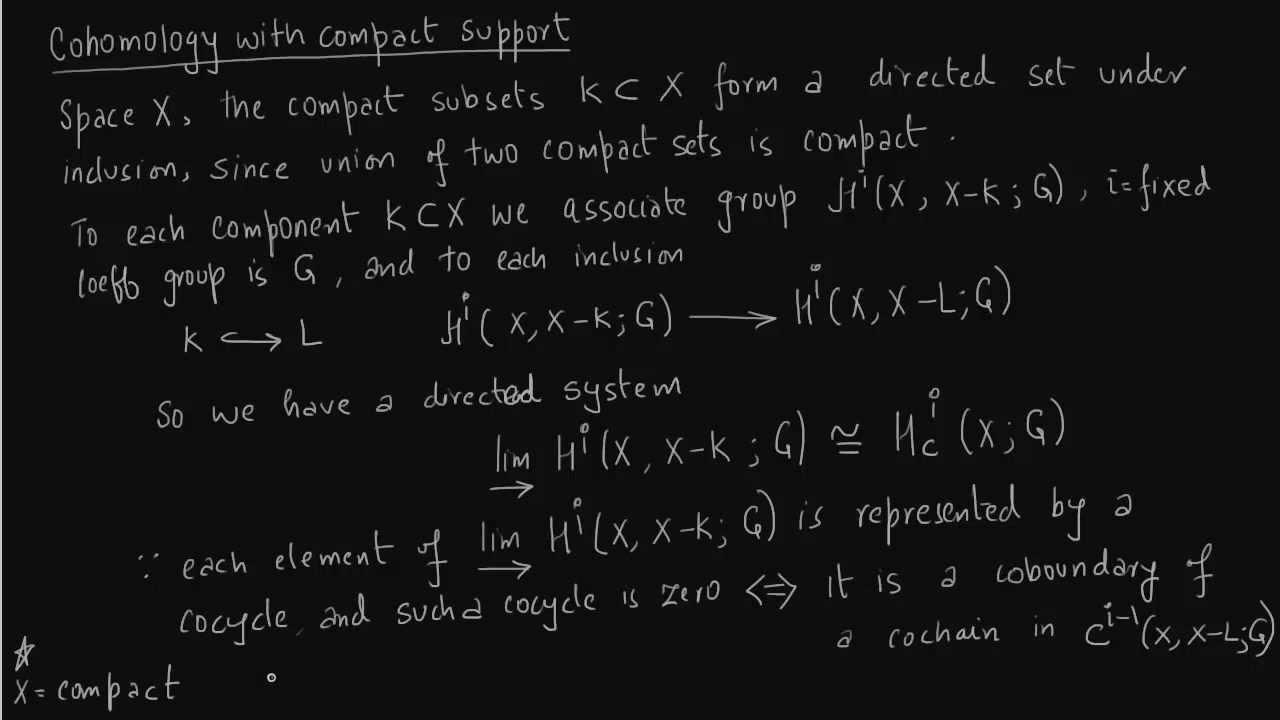 Cohomology with compact support
Space X, the compact subsets K ⊂ X form a directed set under
inclusion, since union of two compact sets is compact.
To each component K ⊂ X we associate group Hⁱ(X, X-K; G), i=fixed
coeff group is G, and to each inclusion
K ↪ L Hⁱ(X, X-K; G) ⟶ Hⁱ(X, X-L; G)
So we have a directed system
lim→ Hⁱ(X, X-K; G) ≅ Hᶜⁱ(X; G)
∵ each element of lim→ Hⁱ(X, X-K; G) is represented by a
cocycle, and such a cocycle is zero ⟺ it is a coboundary of
a cochain in Cⁱ⁻¹(X, X-L; G)
☆
X = compact